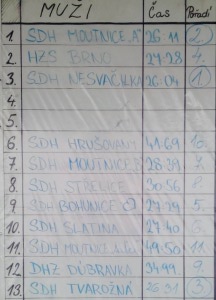 MUŽI ČAS Pořadí
1. SDH MOUTNICE "A" 26 11 2
2. HZS BRNO 27:28 4.
3. SDH NESVAČILKA 26:04 1
4.
5.
6. SDH HRUŠOVANY 41:69
7. SDH MOUTNICE 28:31
8. SDH STŘELICE 30:56 8.
9. SDH BOHUNICE 5.
10. SDH SLATINA 27:40 6.
11. SDH MOUTNICE 49:50 11.
12. DHZ DÚBRAVKA 34:99 9.
13. SDH TVAROŽNÁ 26:31 3